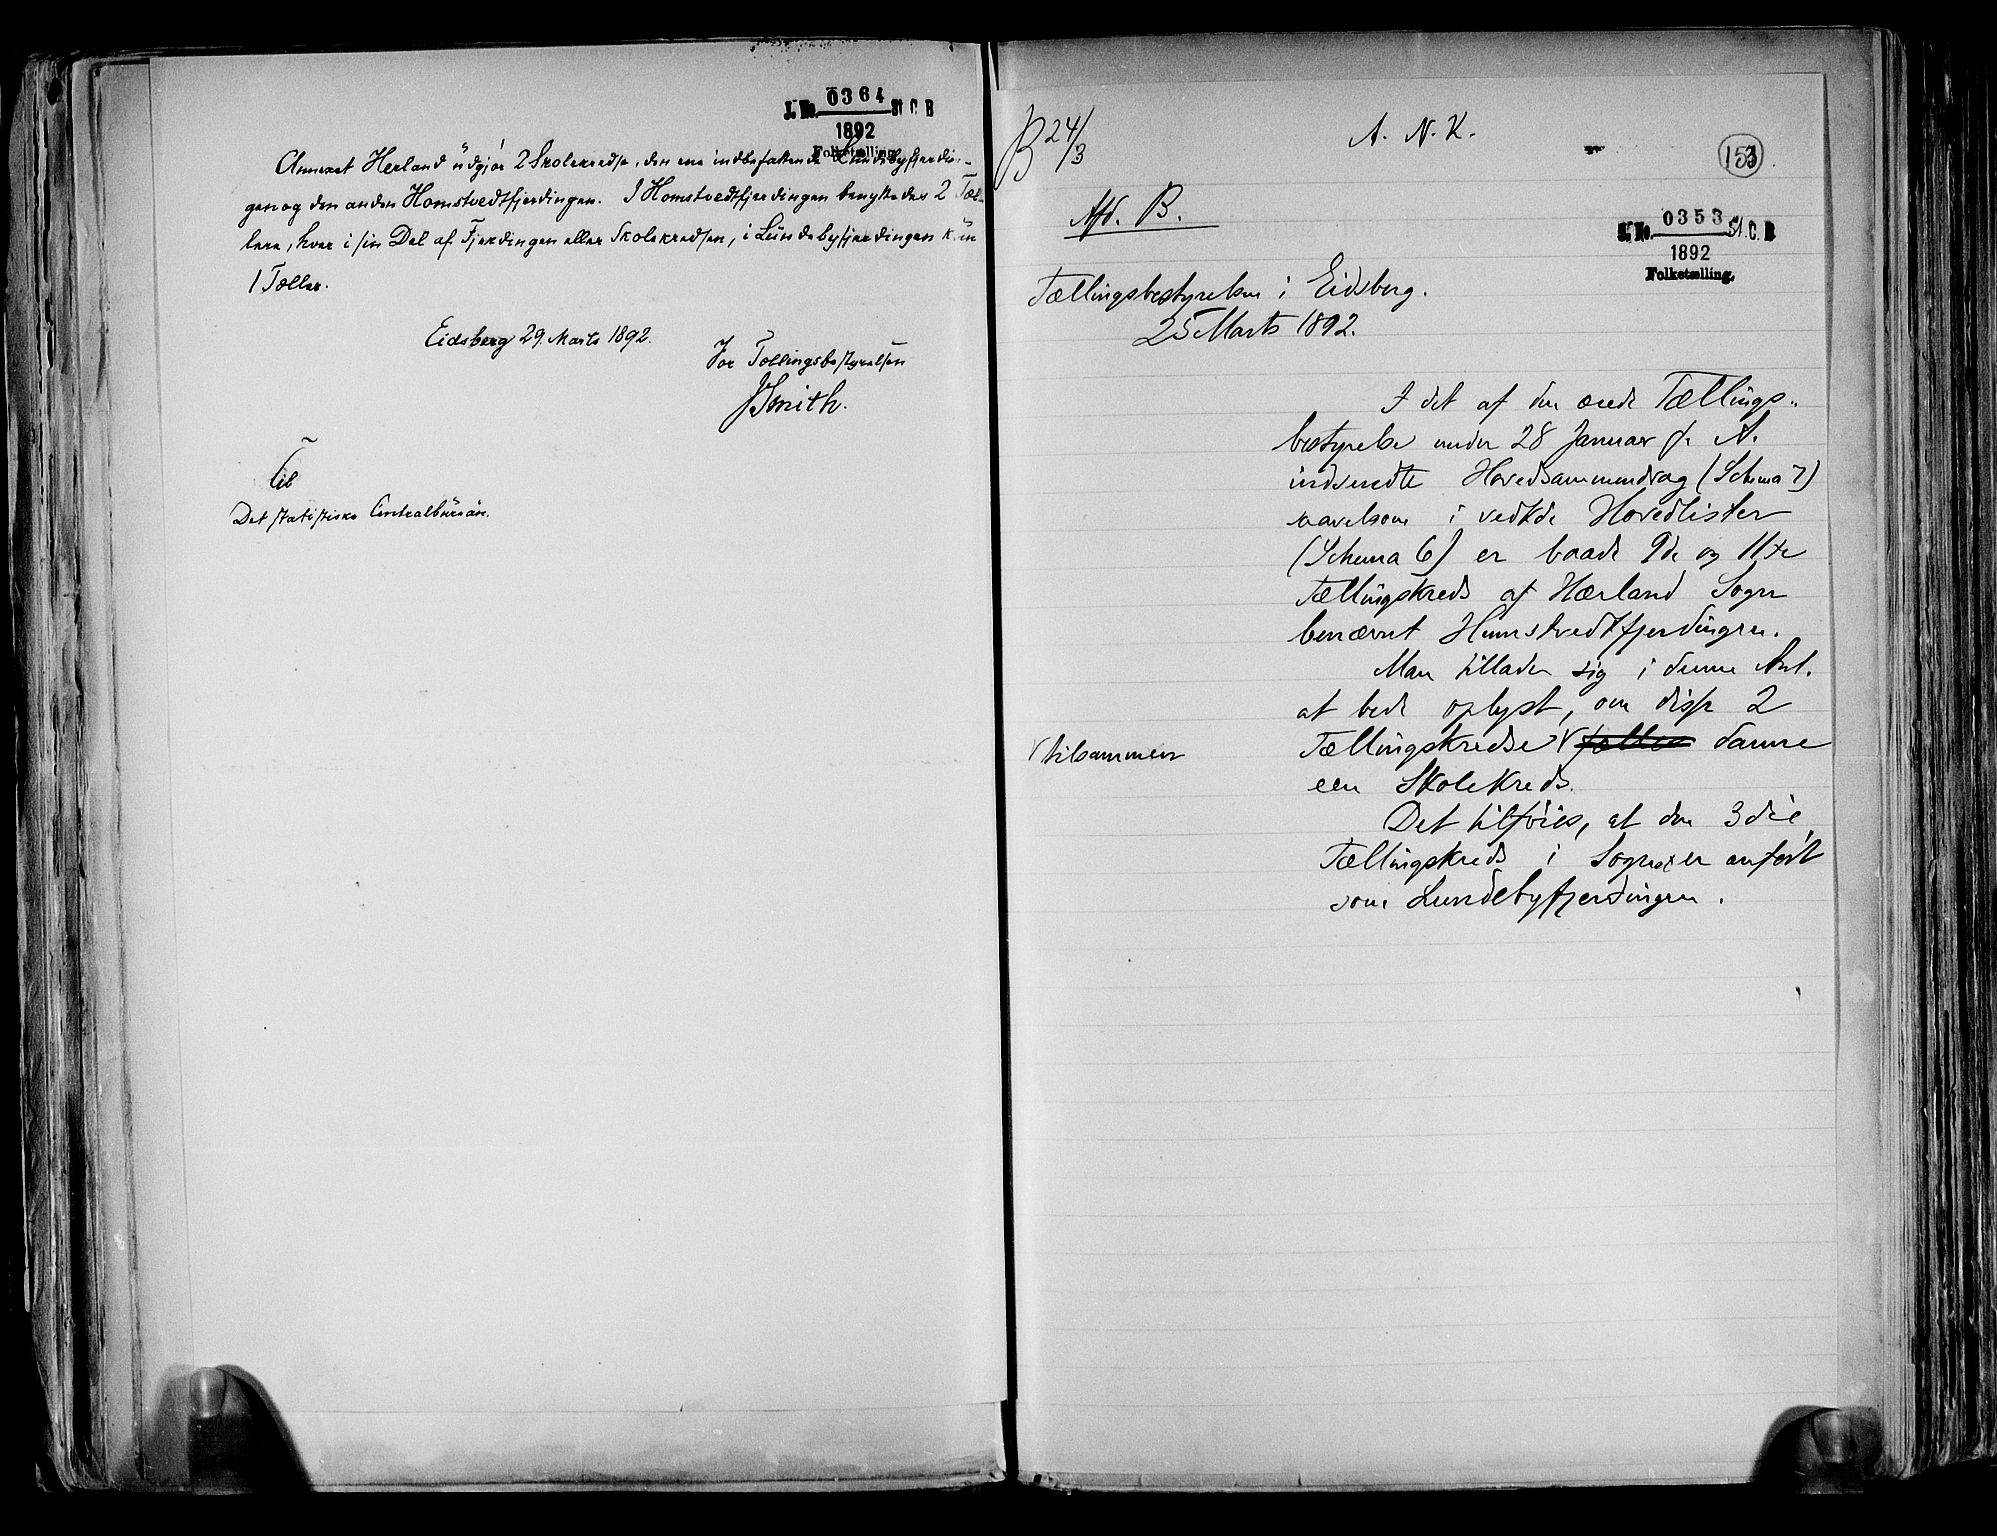 J. No. 0364 St. C. B
1892
Folketælling.
Annexet Herland üdgjør 2 Skolekredse, den ene indbefattende Lundebyfjerdin-
gen og den anden Homstvedtfjerdingen. I Homstvedtfjerdingen benyttedes 2 Tæl-
lere, hver i sin Del af Fjerdingen eller Skolekredsen, i Lündebyfjerdingen kün
1 Tæller.
Eidsberg 29. Marts 1892.
For Tællingsbestyrelsen
J Smith.
Til
Det statistiske Centralbüreau.
B 24/3
A. N. K.
153.
Afd. B.
J. No. 0353 St. C. B
1892
Folketælling.
Tællingsbestyrelsen i Eidsberg.
25 Marts 1892.
I det af den ærede Tællings-
bestyrelse under 28 Januar d. A.
indsendte Hovedsammendrag (Schema 7)
saavelsom i vedkde Hovedlister
(Schema 6) er baade 9de og 11te
Tællingskreds af Hærland Sogn
benævnt Humstvedtfjerdingen.
Man tillader sig i denne Anl.
at bede oplyst, om disse 2
Tællingskredse V danne
V tilsammen
een Skolekreds.
Det tilføies, at den 3die
Tællingskreds i Sognet er anført
som Lundebyfjerdingen.